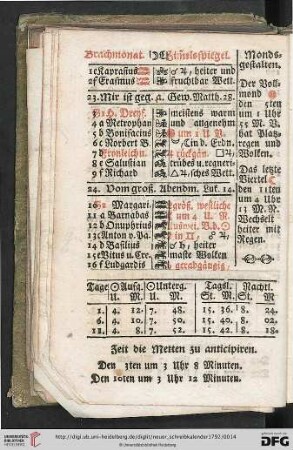 Brachmonat. Him̃lsspiegel.
1 e Kaprasius ☌ ♃, heiter und
2 f Erasmus fruchtbar Wett.
23. Mir ist geg. a. Gew. Matth. 28.
3 H. Dreyf. meistens warm
4 a Metrophan und angenehm
5 b Bonifacius um 1 U V.
6 c Norbert B. in d. Erdn.
7 Fronleichn. rückgän. □♃,
8 e Salustian trübes u. regnetr.
9 f Richard △♃, sches Wett.
24. Vom groß. Abendm. Luk. 14.
10 Margari. größ. westliche
11 a Barnabas um 4 U. N.
12 b Onuphrius
13 c Anton v. Pa. in
14 d Basilius ☌ ♄, heiter
15 e Vitus u. Cre. maste Wolken
16 f Ludgardis geradgängig,
Monds-
gestalten.
Der Voll-
mond
den 5ten
um 1 Uhr
5 M. V.
hat Platz-
regen und
Wolken.
Das letzte
Viertel ☾
den 11ten
um 4 Uhr
13 M. N.
Wechselt
heiter mit
Regen.
Tage ☉ Aufg. ☉ Unterg. Tagsl. Nachtl.
U. M. U. M. St. M. St. M.
1. 4. 12. 7. 48. 15. 36. 8. 24.
6. 4. 10. 7. 50. 15. 40. 8. 02.
11. 4. 8. 7. 52. 15. 42. 8. 18.
Zeit die Metten zu anticipiren.
Den 3ten um 3 Uhr 8 Minuten.
Den 10ten um 3 Uhr 12 Minuten.
UNIVERSITÄTS-BIBLIOTHEK HEIDELBERG
http://digi.ub.uni-heidelberg.de/diglit/neuer_schreibkalender1792/0014
© Universitätsbibliothek Heidelberg
gefördert durch die
DFG